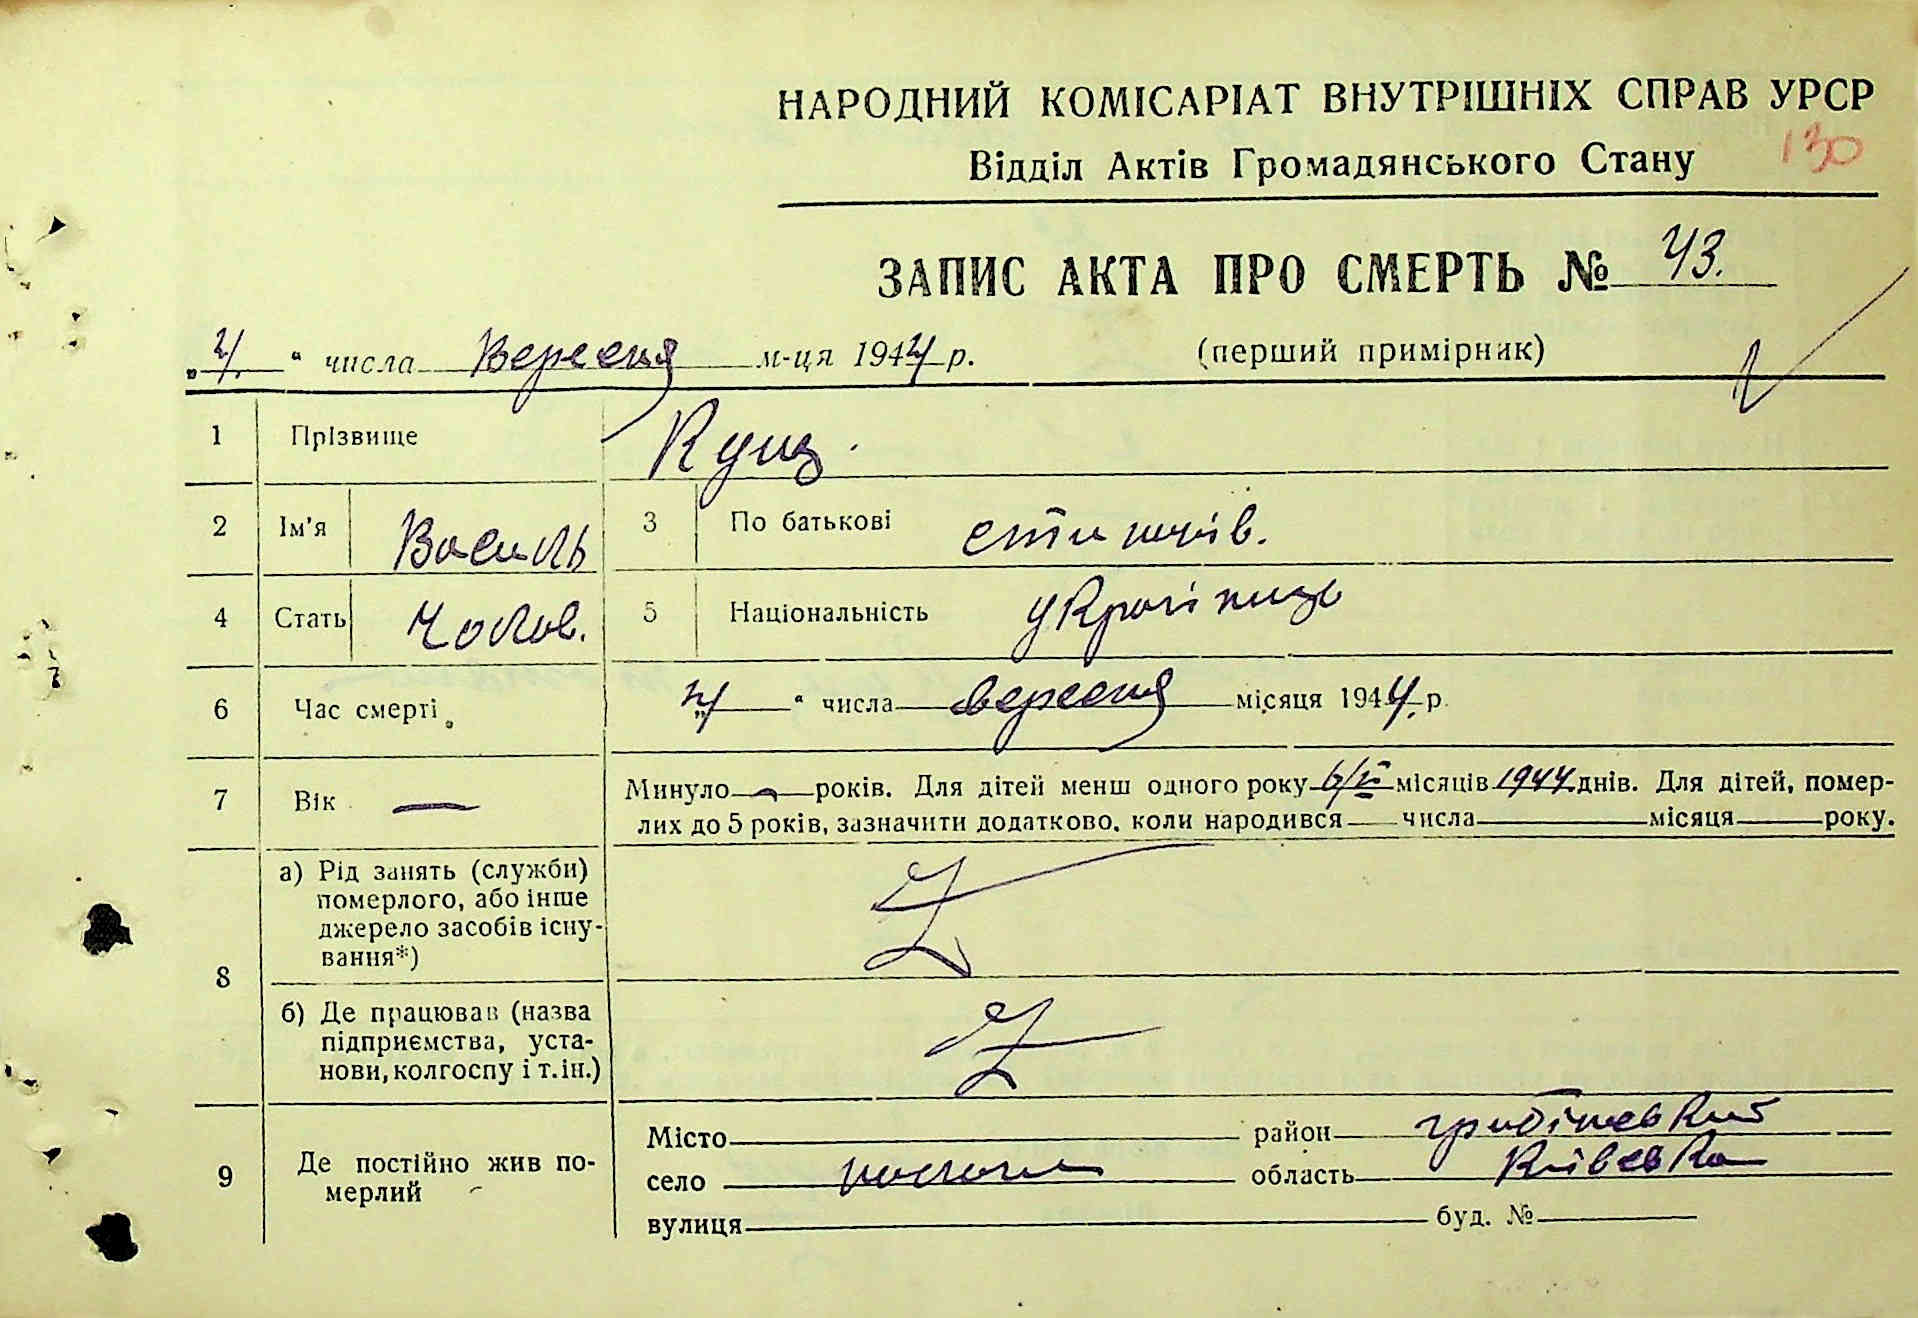 НАРОДНИЙ КОМІСАРІАТ ВНУТРІШНІХ СПРАВ УРСР
Відділ Актів Громадянського Стану 130
ЗАПИС АКТА ПРО СМЕРТЬ № 43.
„4" числа Вересня м-ця 1944 р. (перший примірник)
1 Прізвище Кущ.
2 Ім'я Василь 3 По батькові
4 Стать Чолов. 5 Національність українець
6 Час смерті „4" числа вересня місяця 1944 р.
7 Вік — Минуло — років. Для дітей менш одного року 6/ місяців 1944 днів. Для дітей, помер-
лих до 5 років, зазначити додатково, коли народився числа місяця року.
8 а) Рід занять (служби)
померлого, або інше
джерело засобів існу-
вання*)
б) Де працював (назва
підприємства, уста-
нови, колгоспу і т. ін.)
9 Де постійно жив по-
мерлий
Місто район
село область Київська
вулиця буд. №